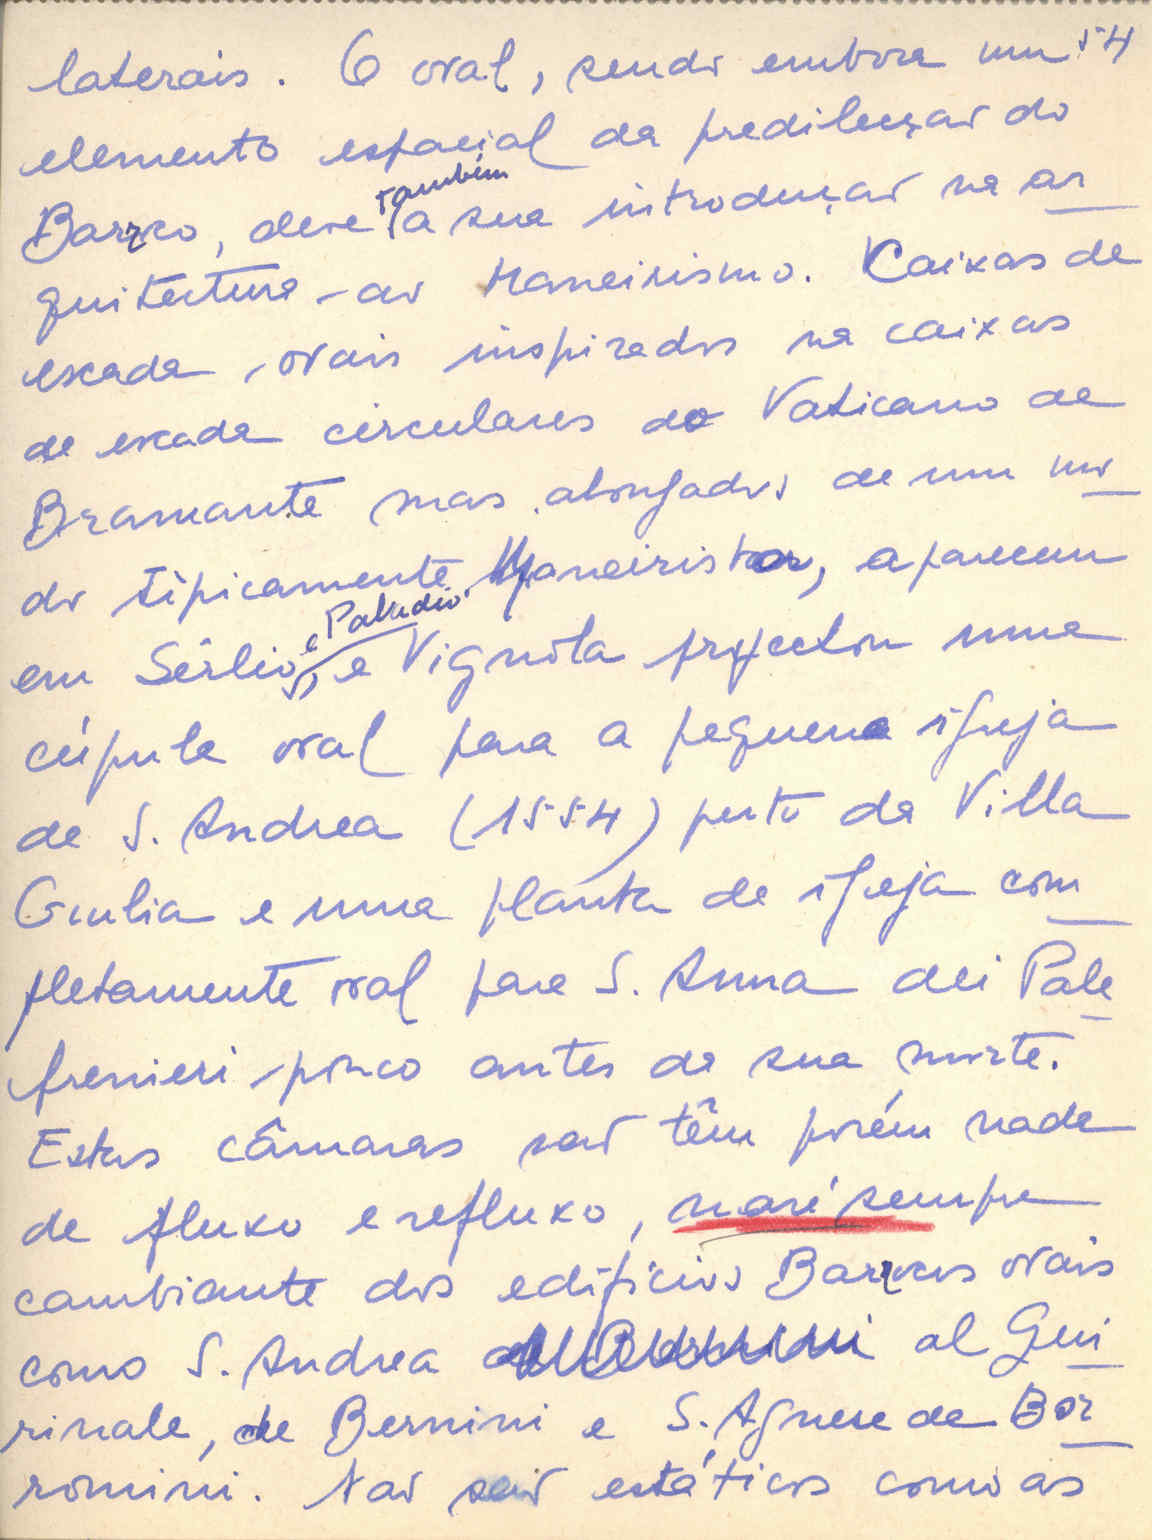 laterais. O oval, sendo embora um 54
elemento espacial da predilecção do
Barroco, deve também a sua introdução na ar
quitectura - ao Maneirismo. Caixas de
escada - ovais inspirados na caixas
de escada circulares do Vaticano de
Bramante mas alongados de um mo
do tìpicamente Maneirista, aparecem
em Sérlio, e Paladio. e Vignola projectou uma
cúpula oval para a pequena igreja
de S. Andrea (1554) perto da Villa
Giulia e uma planta de igreja com
pletamente oval para S. Anna dei Pale
frenieri - pouco antes da sua morte.
Estas câmaras não têm porém nada
de fluxo e refluxo, maré sempre
cambiante dos edifícios Barrocos ovais
como S. Andrea al Qui
rinale, de Bernini e S. Agnese de Bor
romini. Não são estáticos como as